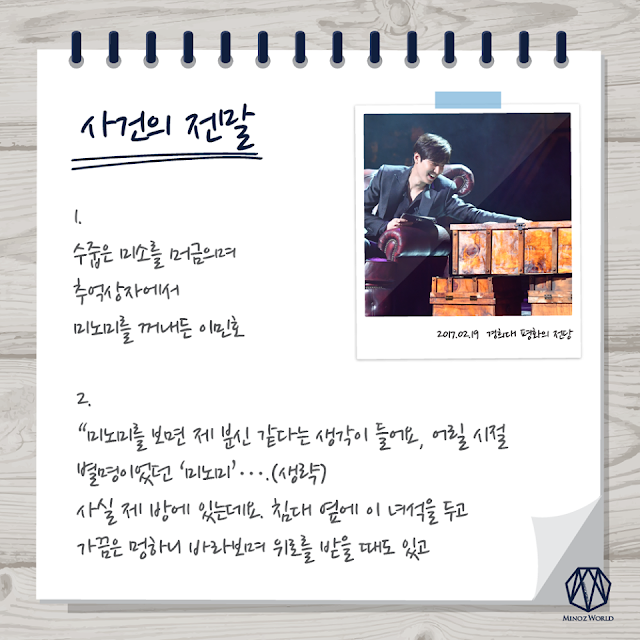 사건의 전말
2017.02.19 경희대 평화의 전당
1.
수줍은 미소를 머금으며
추억상자에서
미노미를 꺼내든 이민호
2.
“미노미를 보면 제 분신 같다는 생각이 들어요, 어릴 시절
별명이었던 ‘미노미’···.(생략)
사실 제 방에 있는데요. 침대 옆에 이 녀석을 두고
가끔은 멍하니 바라보며 위로를 받을 때도 있고
MINOZ WORLD